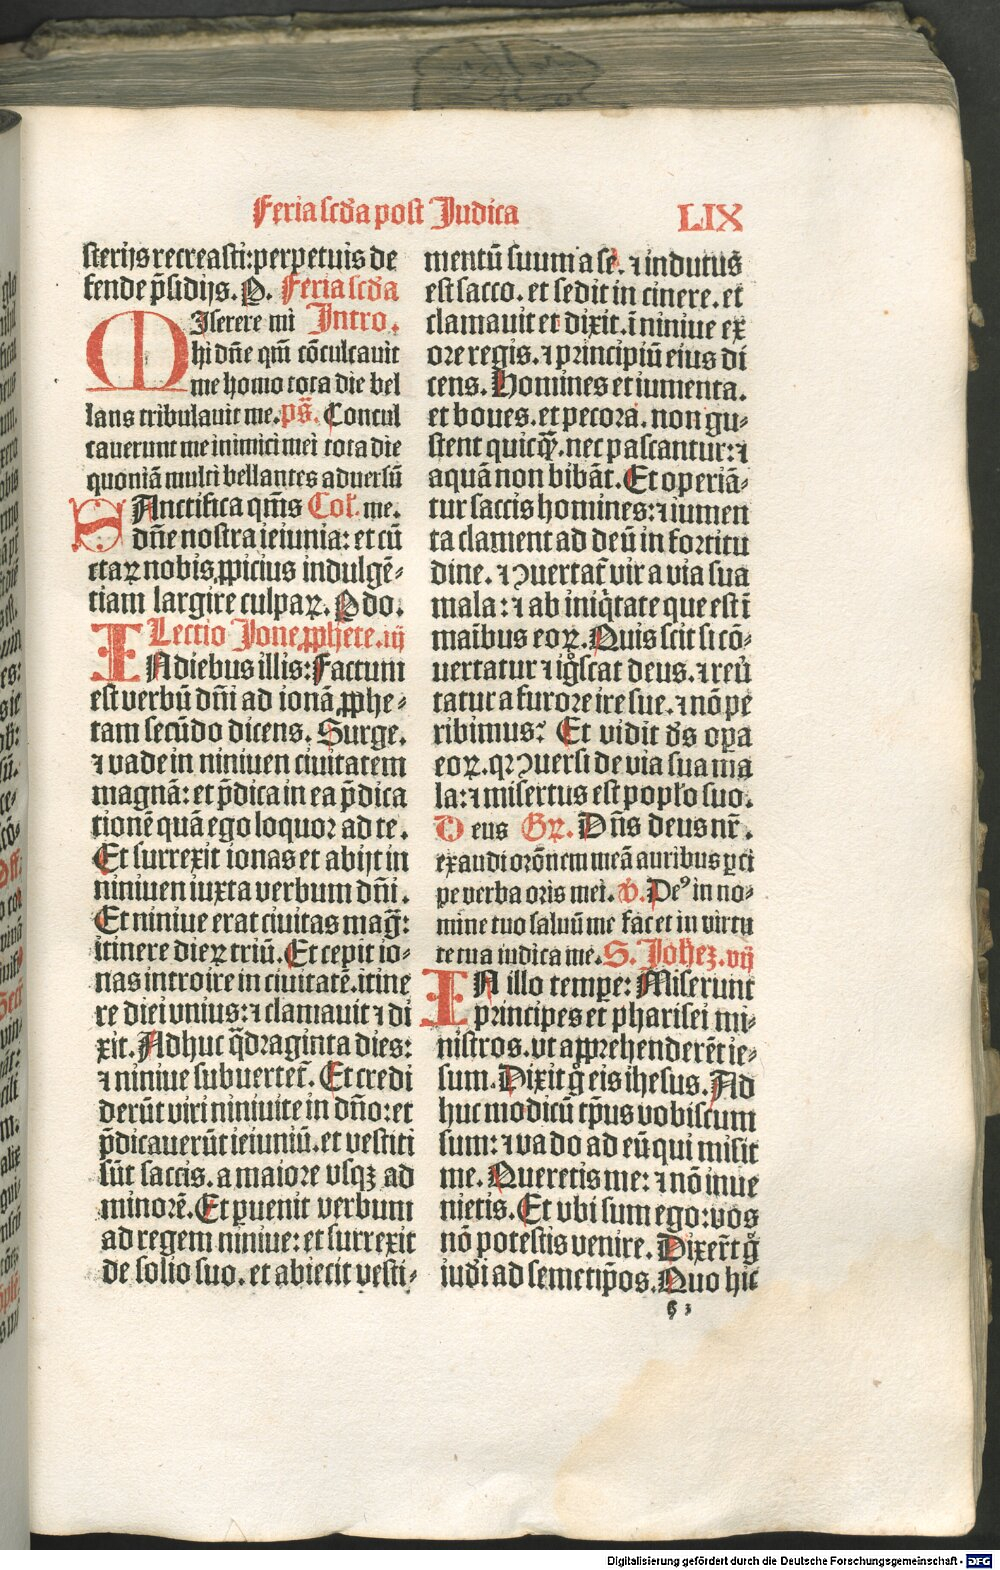 Feria scd̄a post Judica
LIX
sterijs recreasti: perpetuis de
fende p̄sidijs. Feria scd̄a
MIserere mi Intro.
hi dn̄e qm̄ cōculcauit
me homo tota die bel
lans tribulauit me. ps̄. Concul
cauerunt me inimici mei tota die
quoniā multi bellantes aduersū
SAnctifica qm̄s Col̄. me.
dn̄e nostra ieiunia: et cū
ctaꝝ nobis ꝓpicius indulgē⸗
tiam largire culpaꝝ.
Lectio Jone ꝓphete. iij
IN diebus illis: Factum
est verbū dn̄i ad ionā ꝓphe⸗
tam secūdo dicens. Surge.
⁊ vade in niniuen ciuitatem
magnā: et p̄dica in ea p̄dica
tionē quā ego loquor ad te.
Et surrexit ionas et abijt in
niniuen iuxta verbum dn̄i.
Et niniue erat ciuitas maḡ:
itinere dieꝝ triū. Et cepit io⸗
nas introire in ciuitatē. itine
re diei vnius: ⁊ clamauit ⁊ di
xit. Adhuc q̄draginta dies:
⁊ niniue subuertet̄. Et credi
derūt viri niniuite in dn̄o: et
p̄dicauerūt ieiuniū. et vestiti
sūt saccis. a maiore vsqꝫ ad
minorē. Et ꝑuenit verbum
ad regem niniue: et surrexit
de solio suo. et abiecit vesti⸗
mentū suum a se. ⁊ indutus
est sacco. et sedit in cinere. et
clamauit et dixit. ī niniue ex
ore regis. ⁊ principiū eius di
cens. Homines et iumenta.
et boues. et pecora. non gu⸗
stent quicq̄. nec pascantur: ⁊
aquā non bibāt. Et operiā⸗
tur saccis homines: ⁊ iumen
ta clament ad deū in fortitu
dine. ⁊ ꝯuertat̄ vir a via sua
mala: ⁊ ab iniq̄tate que est ī
maībus eoꝝ. Quis scit si cō⸗
uertatur ⁊ ig̊scat deus. ⁊ reū
tatur a furore ire sue. ⁊ nō pe
ribimus? Et vidit ds̄ oꝑa
eoꝝ. qꝛ ꝯuersi de via sua ma
la: ⁊ misertus est popl̄o suo.
Deus Gꝝ. Dn̄s deus nr̄.
exaudi orōnem meā auribus ꝑci
pe verba oris mei. v̄. Deꝰ in no⸗
mine tuo saluū me fac et in virtu
te tua iudica me. S. Joh̄eꝫ. vij
IN illo tempe: Miserunt
principes et pharisei mi⸗
nistros. vt apprehenderēt ie⸗
sum. Dixit g̊ eis ihesus. Ad
huc modicū tp̄us vobiscum
sum: ⁊ vado ad eū qui misit
me. Queretis me: ⁊ nō inue
nietis. Et vbi sum ego: vos
nō potestis venire. Dixer̄t g̊
iudi ad semetip̄os. Quo hic
Digitalisierung gefördert durch die Deutsche Forschungsgemeinschaft - DFG